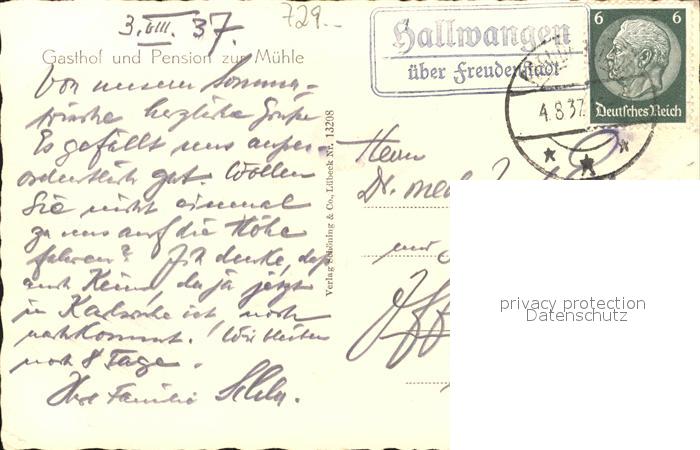 3.VIII.37.
729.-
Gasthof und Pension zur Mühle
Von unserer Sommer-
frische herzliche Grüße
Es gefällt uns außer-
ordentlich gut. Wollen
Sie nicht einmal
zu uns auf die Höhe
fahren? Ich denke, daß
auch Heinz, da ja jetzt
in Karlsruhe ist, noch
nachkommt. Wir bleiben
noch 8 Tage.
Ihre Familie
Verlag Schöning & Co., Lübeck Nr. 13208
Hallwangen
über Freudenstadt
4.8.37
6 6
Deutsches Reich
Herrn
Dr. med.
und
Off
privacy protection
Datenschutz